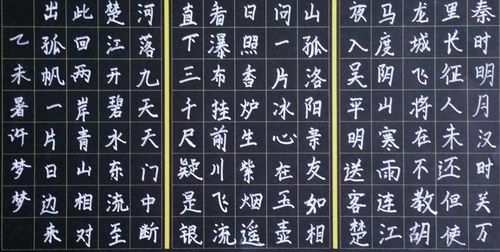 秦时明月汉时关万
里长征人未还但使
龙城飞将在不教胡
马度阴山寒雨连江
夜入吴平明送客楚
山孤洛阳亲友如相
问一片冰心在玉壶
日照香炉生紫烟遥
看瀑布挂前川飞流
直下三千尺疑是银
河落九天天门中断
楚江开碧水东流至
此回两岸青山相对
出孤帆一片日边来
乙未暑许梦梦